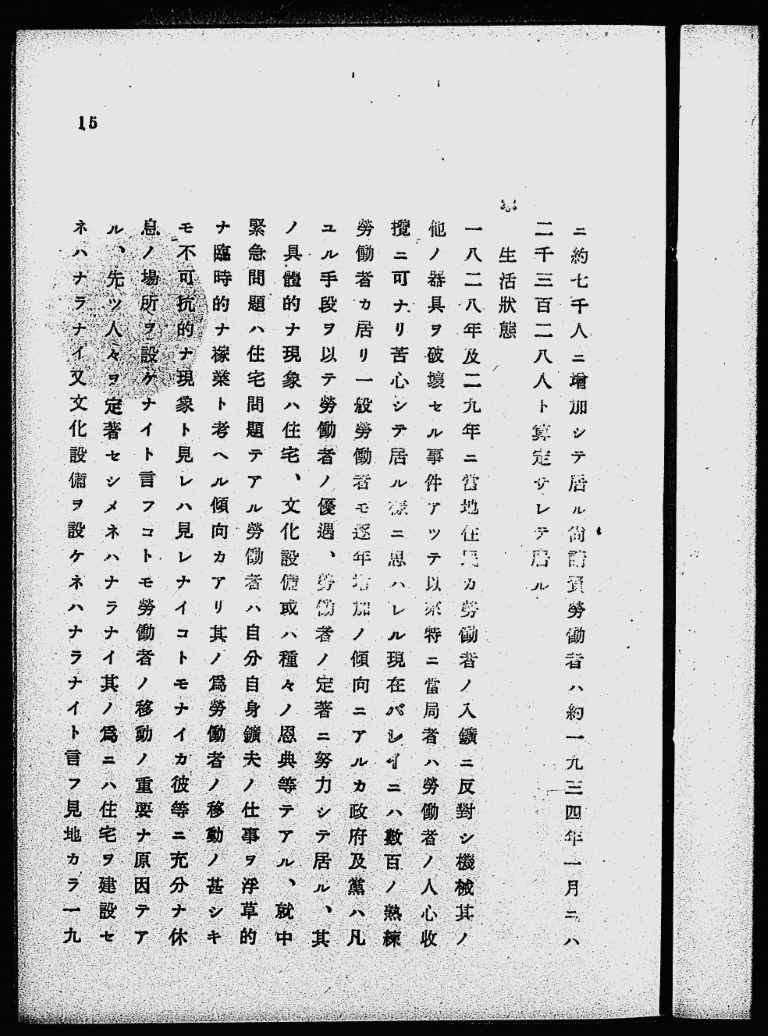 ニ約七千人ニ增加シテ居ル尙請負勞働者ハ約一九三四年一月ニハ
二千三百二八人ト算定サレテ居ル
生活狀態
一八二八年及二九年ニ當地住民カ勞働者ノ入鑛ニ反對シ機械其ノ
他ノ器具ヲ破壞セル事件アツテ以來特ニ當局者ハ勞働者ノ人心收
攬ニ可ナリ苦心シテ居ル樣ニ思ハレル現在バレイニハ數百ノ熟練
勞働者カ居リ一般勞働者モ逐年增加ノ傾向ニアルカ政府及黨ハ凡
ユル手段ヲ以テ勞働者ノ優遇、勞働者ノ定著ニ努力シテ居ル、其
ノ具體的ナ現象ハ住宅、文化設備或ハ種々ノ恩典等テアル、就中
緊急問題ハ住宅問題テアル勞働者ハ自分自身鑛夫ノ仕事ヲ浮草的
ナ臨時的ナ稼業ト考ヘル傾向カアリ其ノ爲勞働者ノ移動ノ甚シキ
モ不可抗的ナ現象ト見レハ見レナイコトモナイカ彼等ニ充分ナ休
息ノ場所ヲ設ケナイト言フコトモ勞働者ノ移動ノ重要ナ原因テア
ル、先ツ人々ヲ定著セシメネハナラナイ其ノ爲ニハ住宅ヲ建設セ
ネハナラナイ又文化設備ヲ設ケネハナラナイト言フ見地カラ一九
15